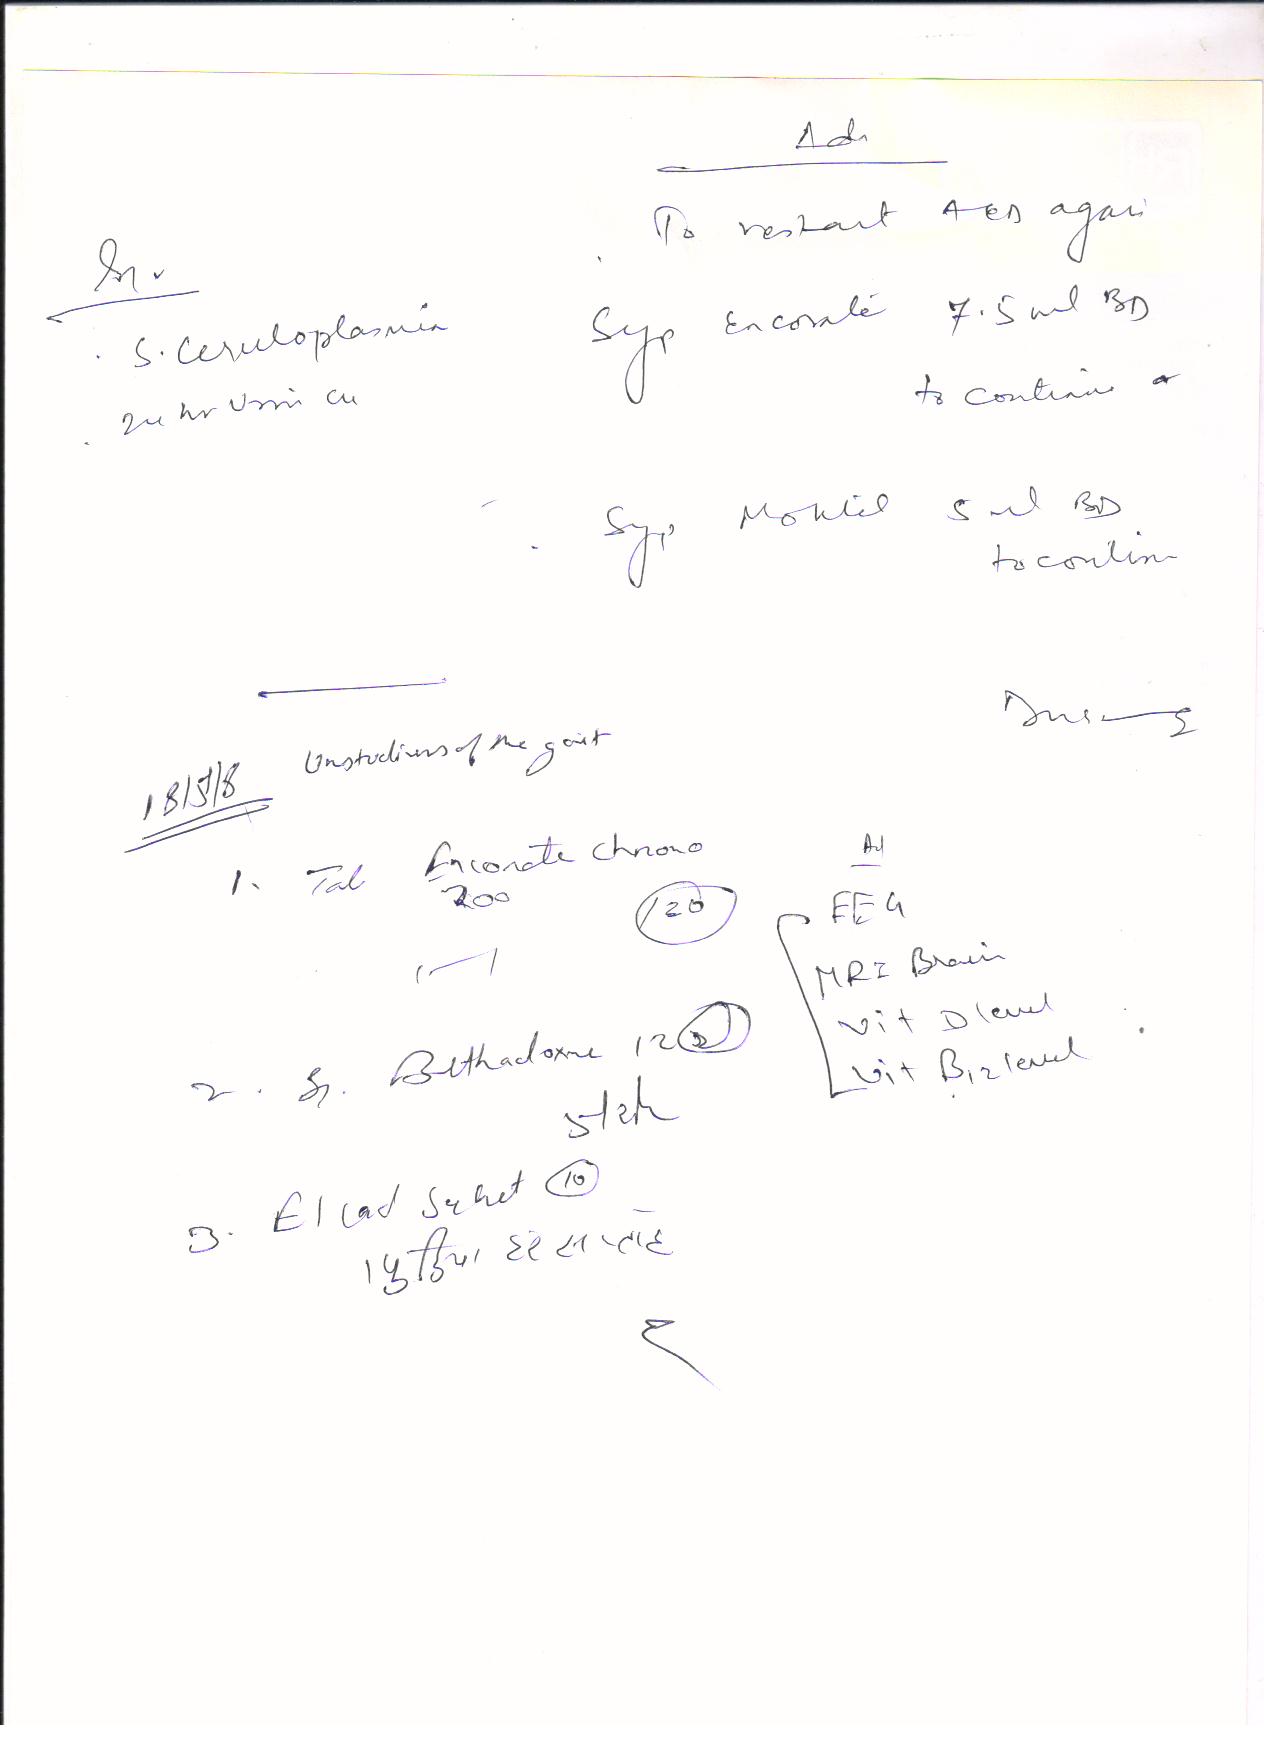 Adv
To restart AED again
Inv.
Syp Encorate 7.5 ml BD
to continue
S. Ceruloplasmin
24 hr Urin cu
Syp 5 ml BD
to continue
Unsteadiness of the gait
18/5/8
1. Tab Encorate chrono
200
120
1—1
Ad
EEG
MRI Brain
Vit D level
Vit B12 level
2. Sy. Bethadoxine 12
3. El Cad Sachet 10
1 પુડિયા દર